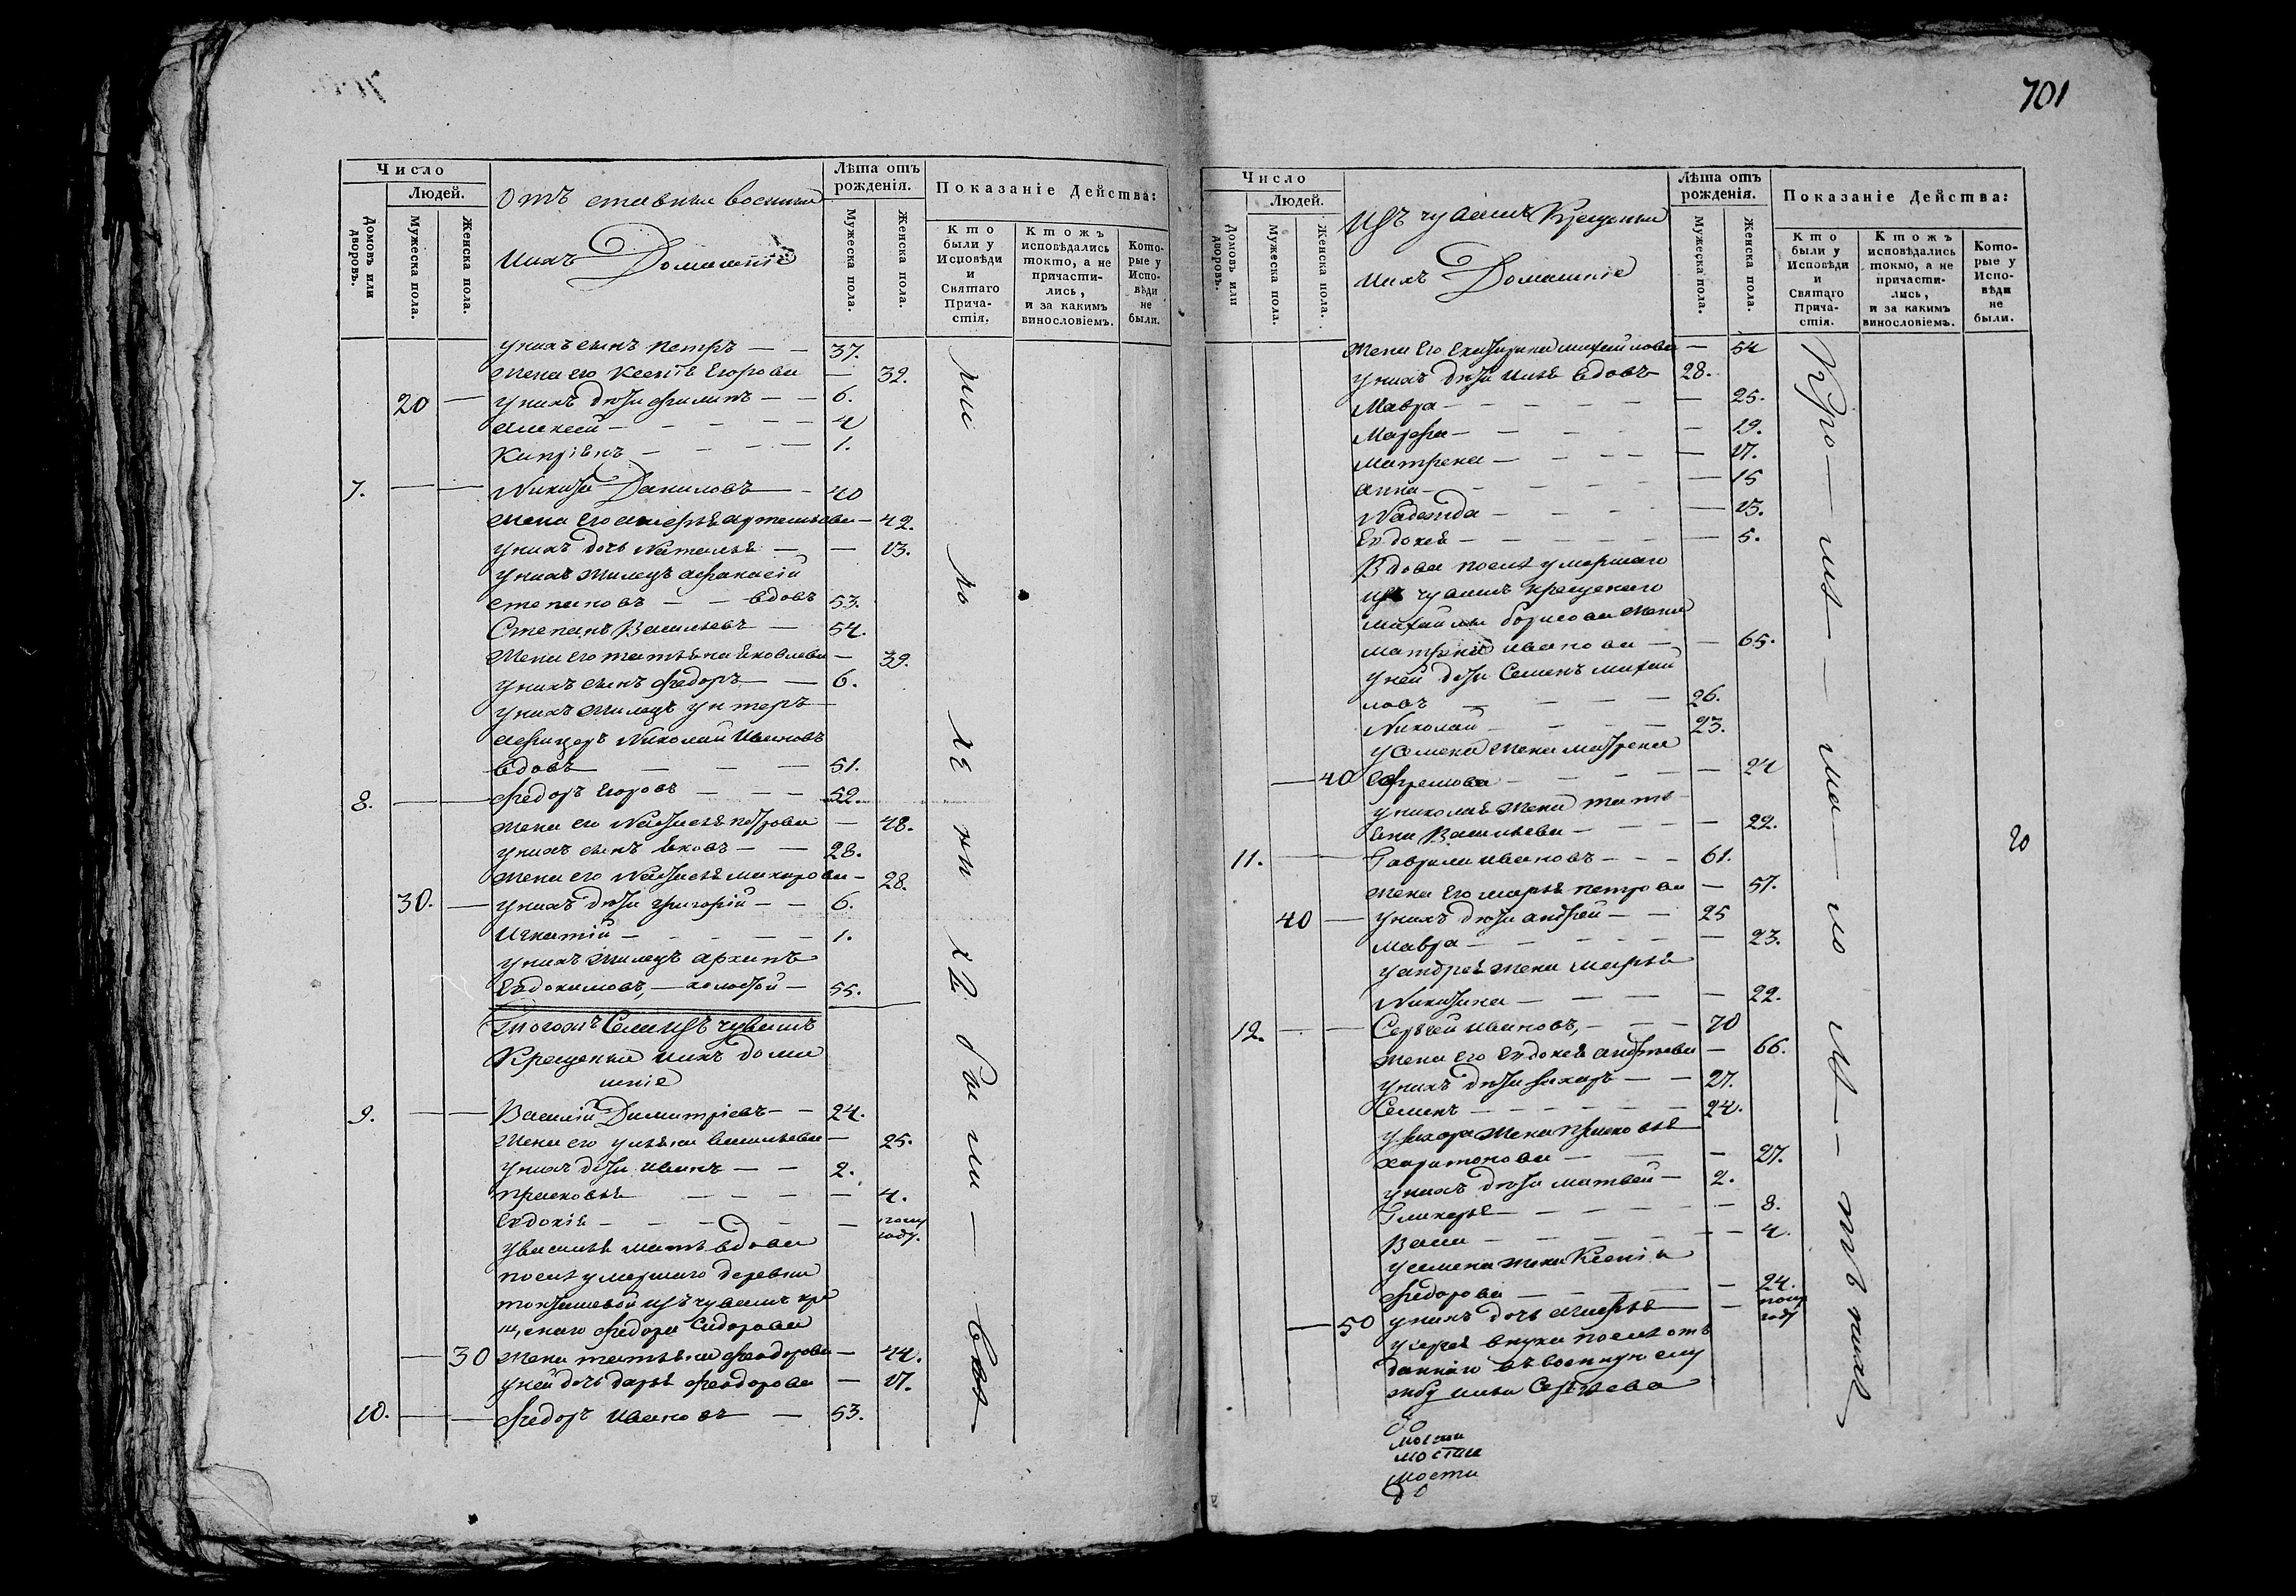 Число
Людей.
Домовъ или дворовъ.
Мужеска пола.
Женска пола.
Отъ ставныя военныя
ихъ Домашніе
Лѣта отъ рожденія.
Мужеска пола.
Женска пола.
Показаніе Действа:
Кто были у Исповѣди и Святаго Причастія.
Ктожъ исповѣдались токмо, а не причастились, и за какимъ винословіемъ.
Которые у Исповѣди не были.
у нихъ сынъ петръ — — 37.
жена его Ксенія Егорова — 32.
20 — у нихъ дѣти филипъ — — 6.
алексей — — — — 4
Кипріянъ — — — — 1.
7. — — Никита Даниловъ — 40
жена его агафья артемьева — 42.
у нихъ дочь Наталья — — 13.
у нихъ жилецъ афанасій
степановъ — — вдовъ 53.
Степанъ Васильевъ — 54.
жена его татьяна яковлева — 39.
у нихъ сынъ федоръ — — 6.
у нихъ жилецъ унтеръ
афицеръ Николай Ивановъ
вдовъ — — — 51.
8. — — федоръ Егоровъ — — — 52.
жена его Настасья петрова — 48.
у нихъ сынъ яковъ — — 28.
жена его Настасья макарова — 28.
30. — у нихъ дѣти григорій — — 6.
Игнатій — — — — 1.
у нихъ жилецъ архипъ
Евдокимовъ, — холостой — 55.
тогожъ Села изъ чувашъ
Крещеныя и ихъ дома
шніе
9. — — Василій Димитріевъ — — 24.
жена его ульяна васильева — 25.
у нихъ дѣти иванъ — — 2.
прасковья — — — — 4.
евдокія — — — — — полу году.
у василья мать вдова
послѣ умершаго деревни
изъ чувашъ кре
щенаго федора Сидорова
30 жена татьяна феодорова — 44.
у ней дочь дарья феодорова — 17.
10. — — федоръ Ивановъ — 53.
701
Число
Людей.
Домовъ или дворовъ.
Мужеска пола.
Женска пола.
Изъ чувашъ Крещеныя
ихъ Домашніе
Лѣта отъ рожденія.
Мужеска пола.
Женска пола.
Показаніе Действа:
Кто были у Исповѣди и Святаго Причастія.
Ктожъ исповѣдались токмо, а не причастились, и за какимъ винословіемъ.
Которые у Исповѣди не были.
жена Его Екатерина михайлова — 54
у нихъ дѣти илья вдовъ 28.
Мавра — — — — — 25.
Марфа — — — — 19.
матрена — — — — — 17.
анна — — — — — 15
Надежда — — — — 13.
Евдокея — — — — — 5.
Вдова послѣ умершаго
изъ чувашъ крещенаго
михайлы борисова жена
матрена иванова — — 65.
у ней дѣти Семенъ михай
ловъ — — — — 26.
Николай — — — — 23.
у семена жена матрена
— 40 ефремова — — — — — 24
у николая жена тать
яна Васильева — — — — 22.
11. — — Гаврила ивановъ — — — 61.
жена Его марья петрова — 57.
40 — у нихъ дѣти андрей — — 25
мавра — — — — — 23.
у андрея жена марья
Никитина — — — — 22.
12. — — Сергей ивановъ, — — — 70
жена его Евдокея андреева — 66.
у нихъ дѣти захаръ — — 27.
Семенъ — — — — — 24.
у захара жена прасковья
харитонова — — — 27.
у нихъ дѣти матвей — 2.
Гликерья — — — — — 8.
Васса — — — — — 4.
у семена жена Ксенія
федорова — — — — 24.
— 50 у нихъ дочь агафья — — полу году
у сергея внуки послѣ от
даннаго въ военную слу
жбу ильи Сергѣева
20
мости
мости
мости